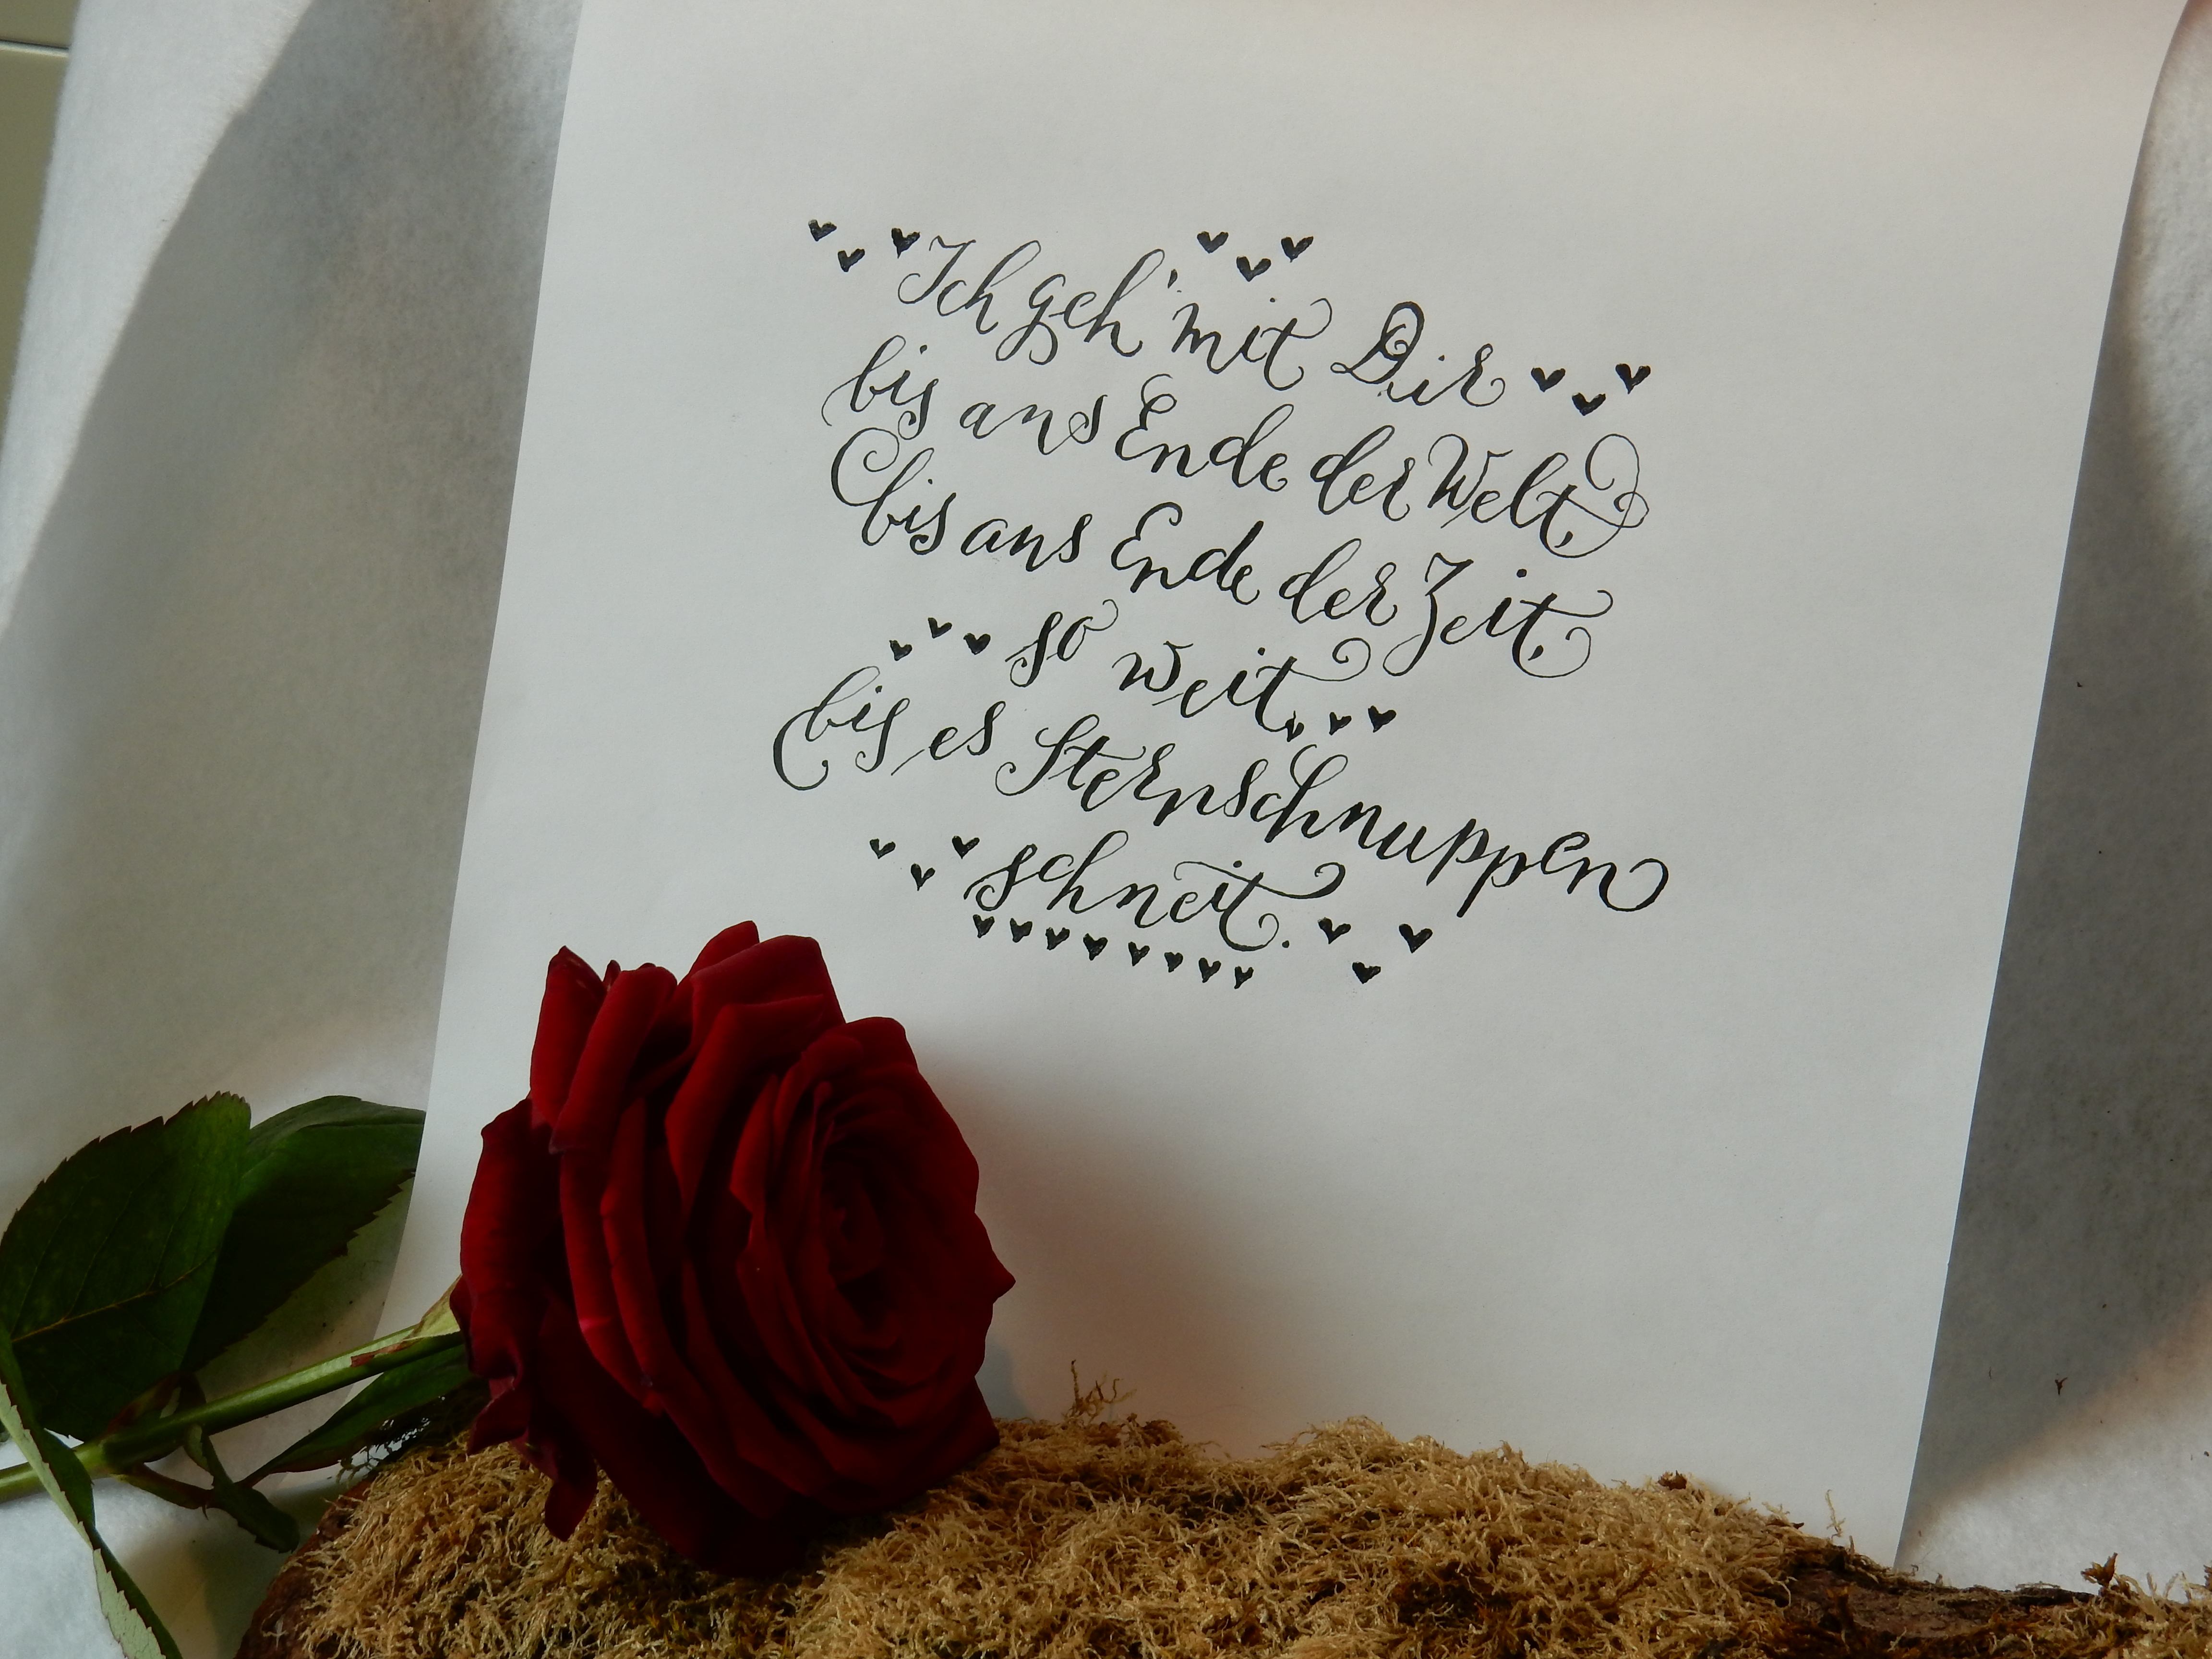 Ich geh' mit Dir
bis ans Ende der Welt
bis ans Ende der Zeit
so weit,
bis es Sternschnuppen
schneit.